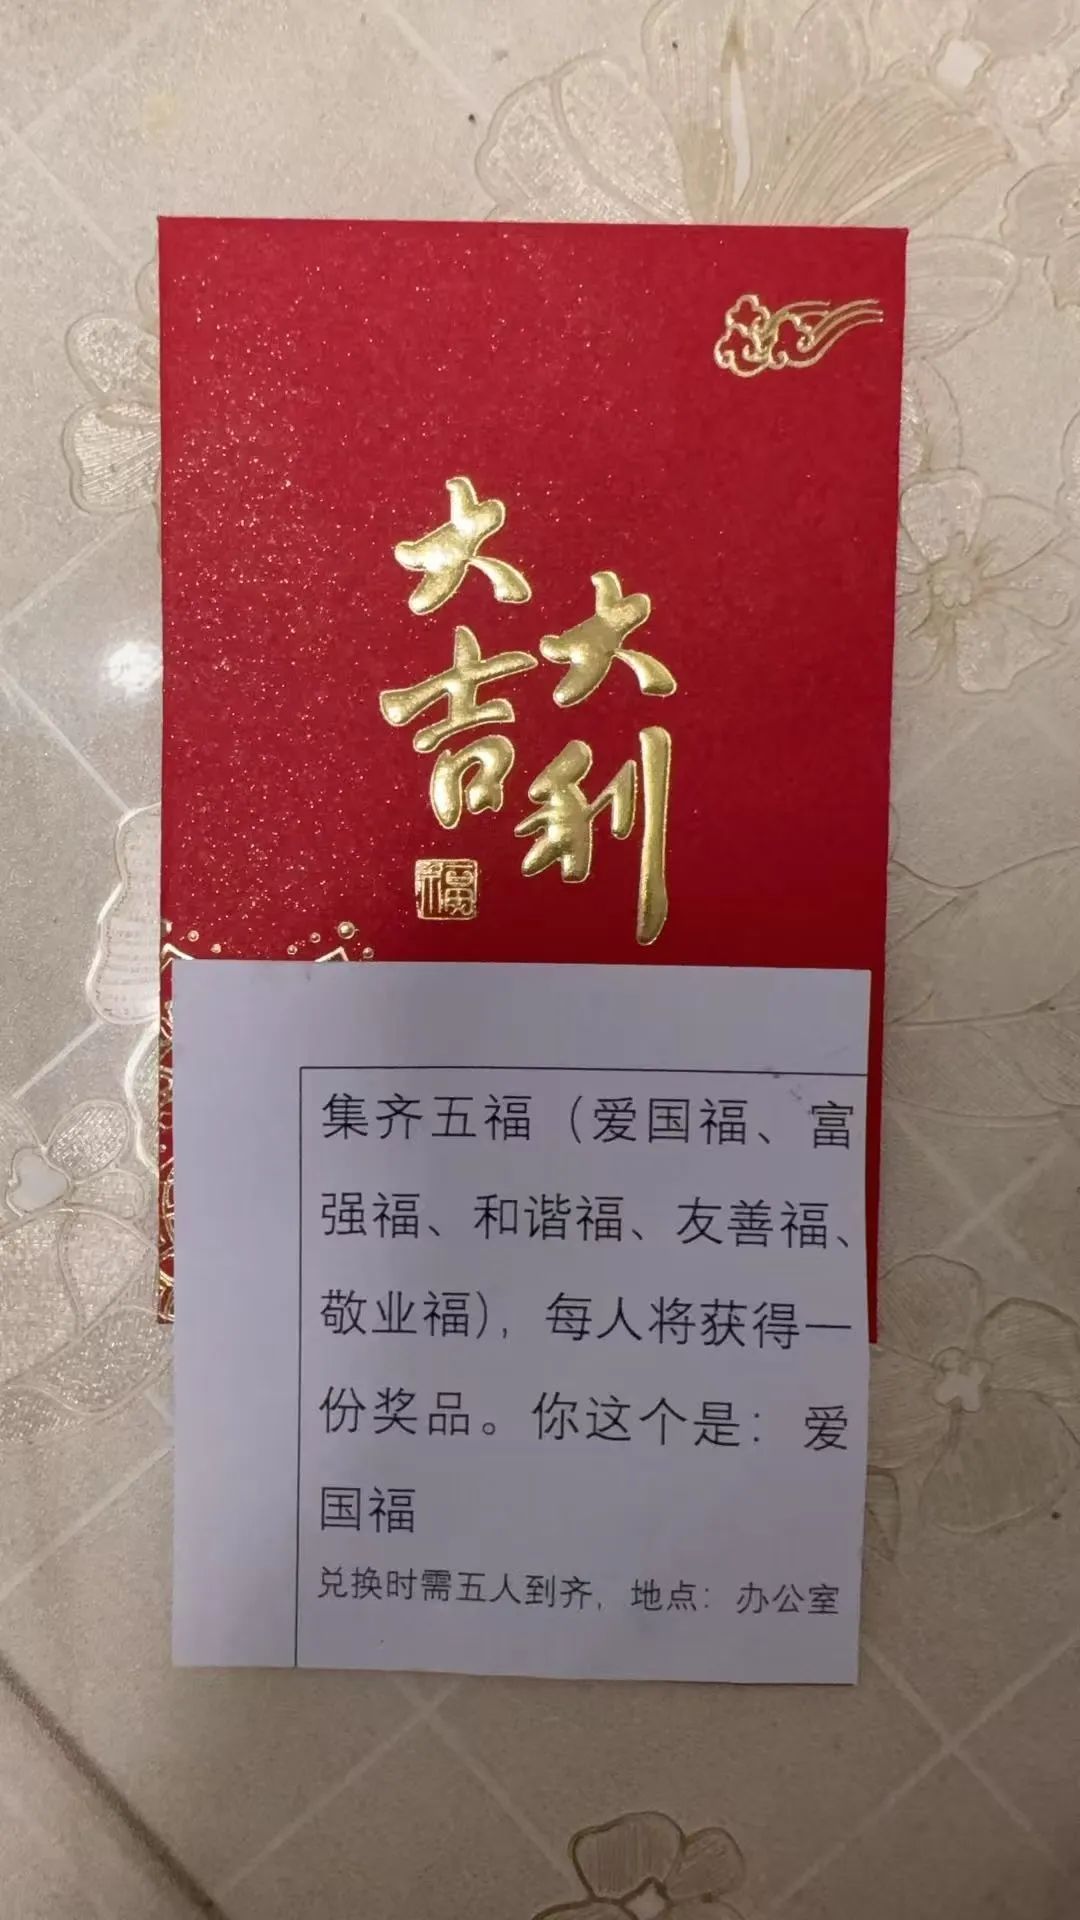 大吉
大利
福
集齐五福（爱国福、富
强福、和谐福、友善福、
敬业福），每人将获得一
份奖品。你这个是：爱
国福
兑换时需五人到齐，地点：办公室